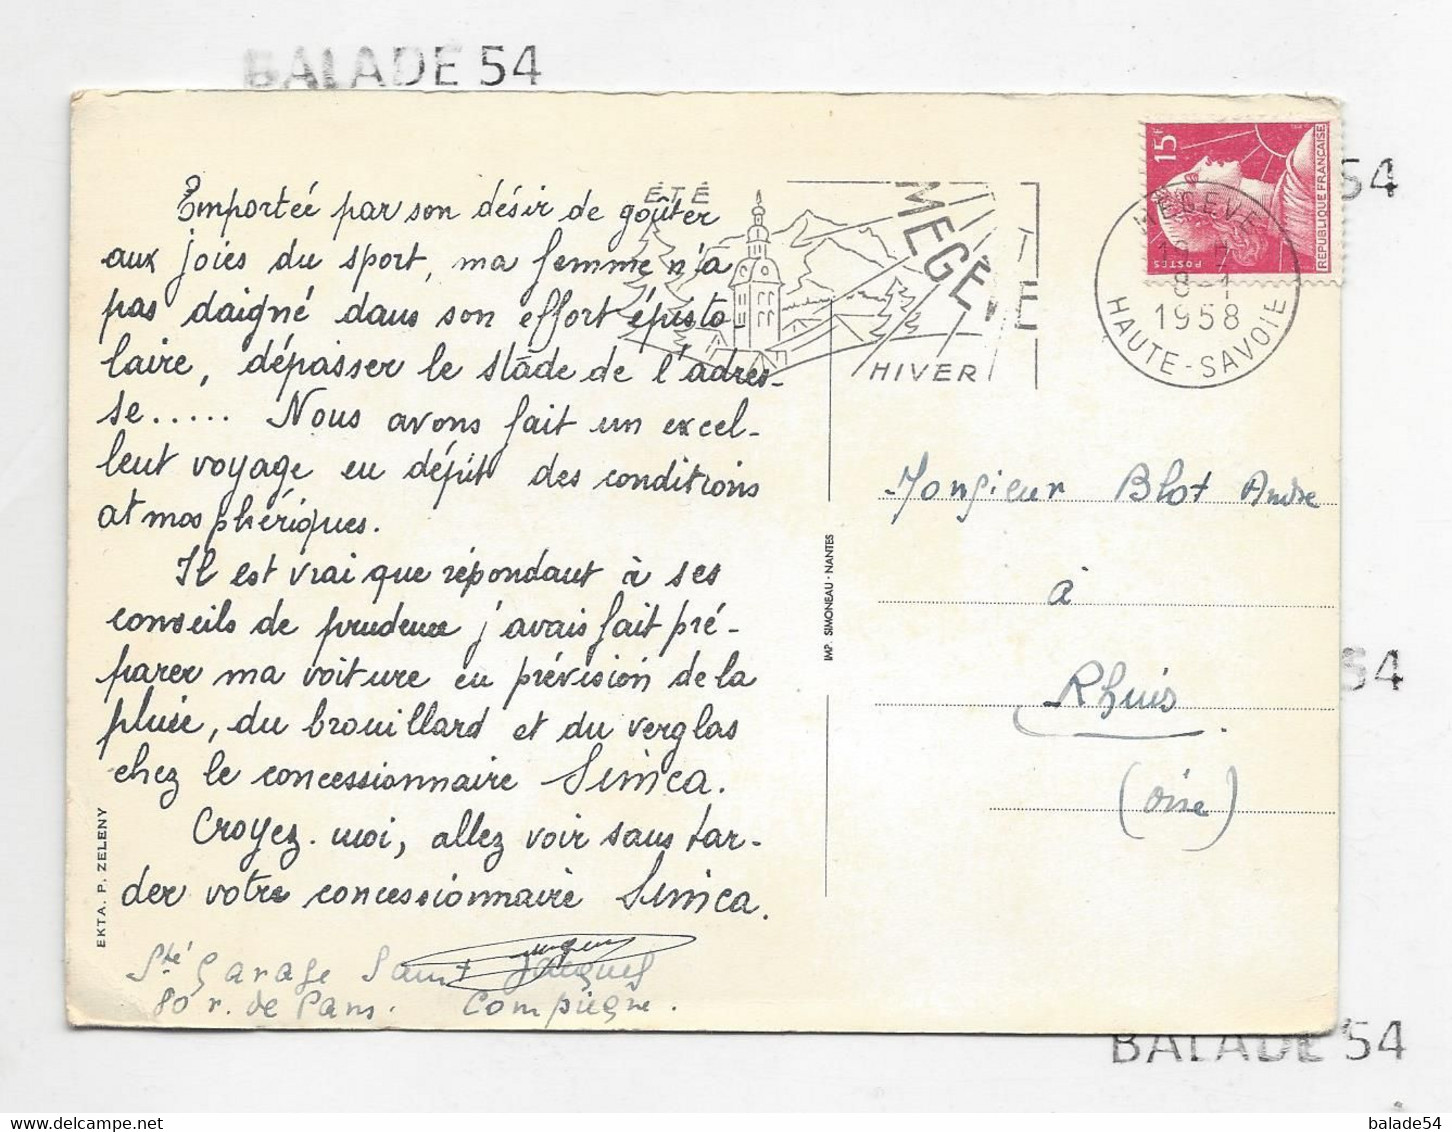 BALADE 54
Emportée par son désir de goûter
aux joies du sport, ma femme n'a
pas daigné dans son effort épisto-
laire, dépasser le stade de l'adres-
se..... Nous avons fait un excel-
lent voyage en dépit des conditions
atmosphériques.
Il est vrai que répondant à ses
conseils de prudence j'avais fait pré-
parer ma voiture en prévision de la
pluie, du brouillard et du verglas
chez le concessionnaire Simca.
Croyez-moi, allez voir sans tar-
der votre concessionnaire Simca.
Sté Garage Saint Jacques
80 r. de Paris. Compiègne.
EKTA. P. ZELENY
IMP. SIMONEAU - NANTES
ÉTÉ
MEGÈVE
HIVER
15F
POSTES
REPUBLIQUE FRANÇAISE
MEGEVE
8-1
1958
HAUTE-SAVOIE
Monsieur Blot André
à
Rhuis
(Oise)
54
54
BALADE 54
delcampe.net
balade54